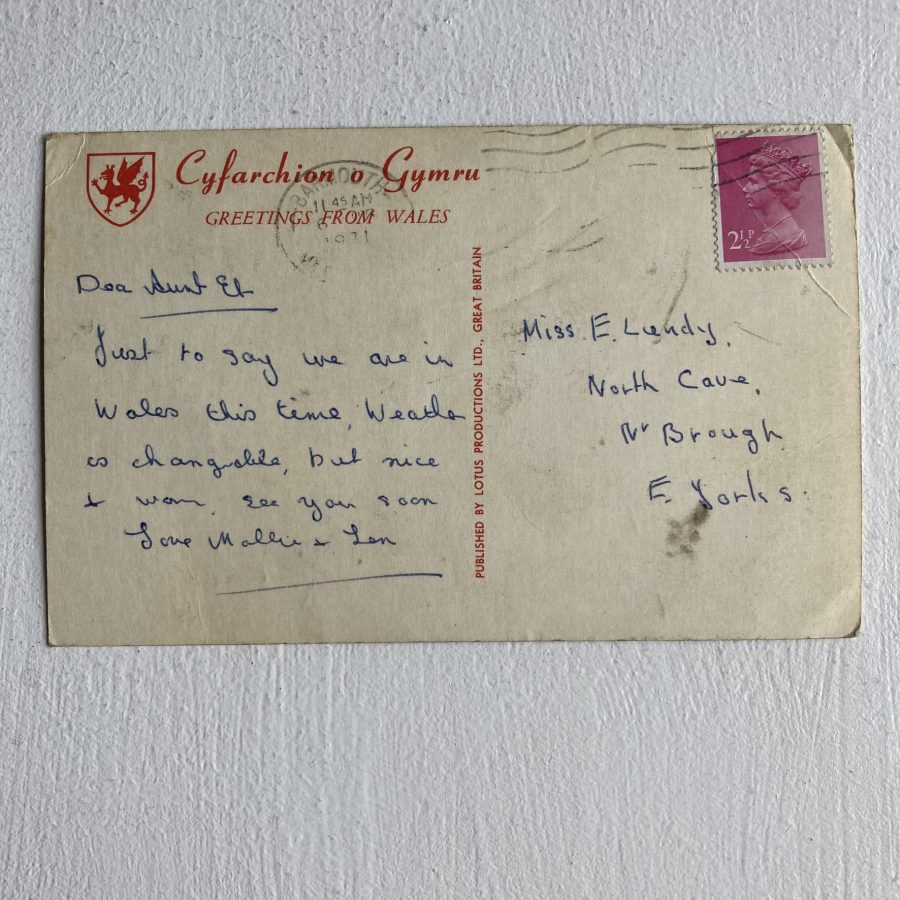 Cyfarchion o Gymru
GREETINGS FROM WALES
BARMOUTH
11 45 AM
1971
2½P
Dea Aunt Ef
Just to say we are in
Wales this time, Weathe
is changeable, but nice
& warm, see you soon
Love Mollie & Len
PUBLISHED BY LOTUS PRODUCTIONS LTD., GREAT BRITAIN
Miss E. Lundy,
North Cave,
Nr Brough
E. Yorks.